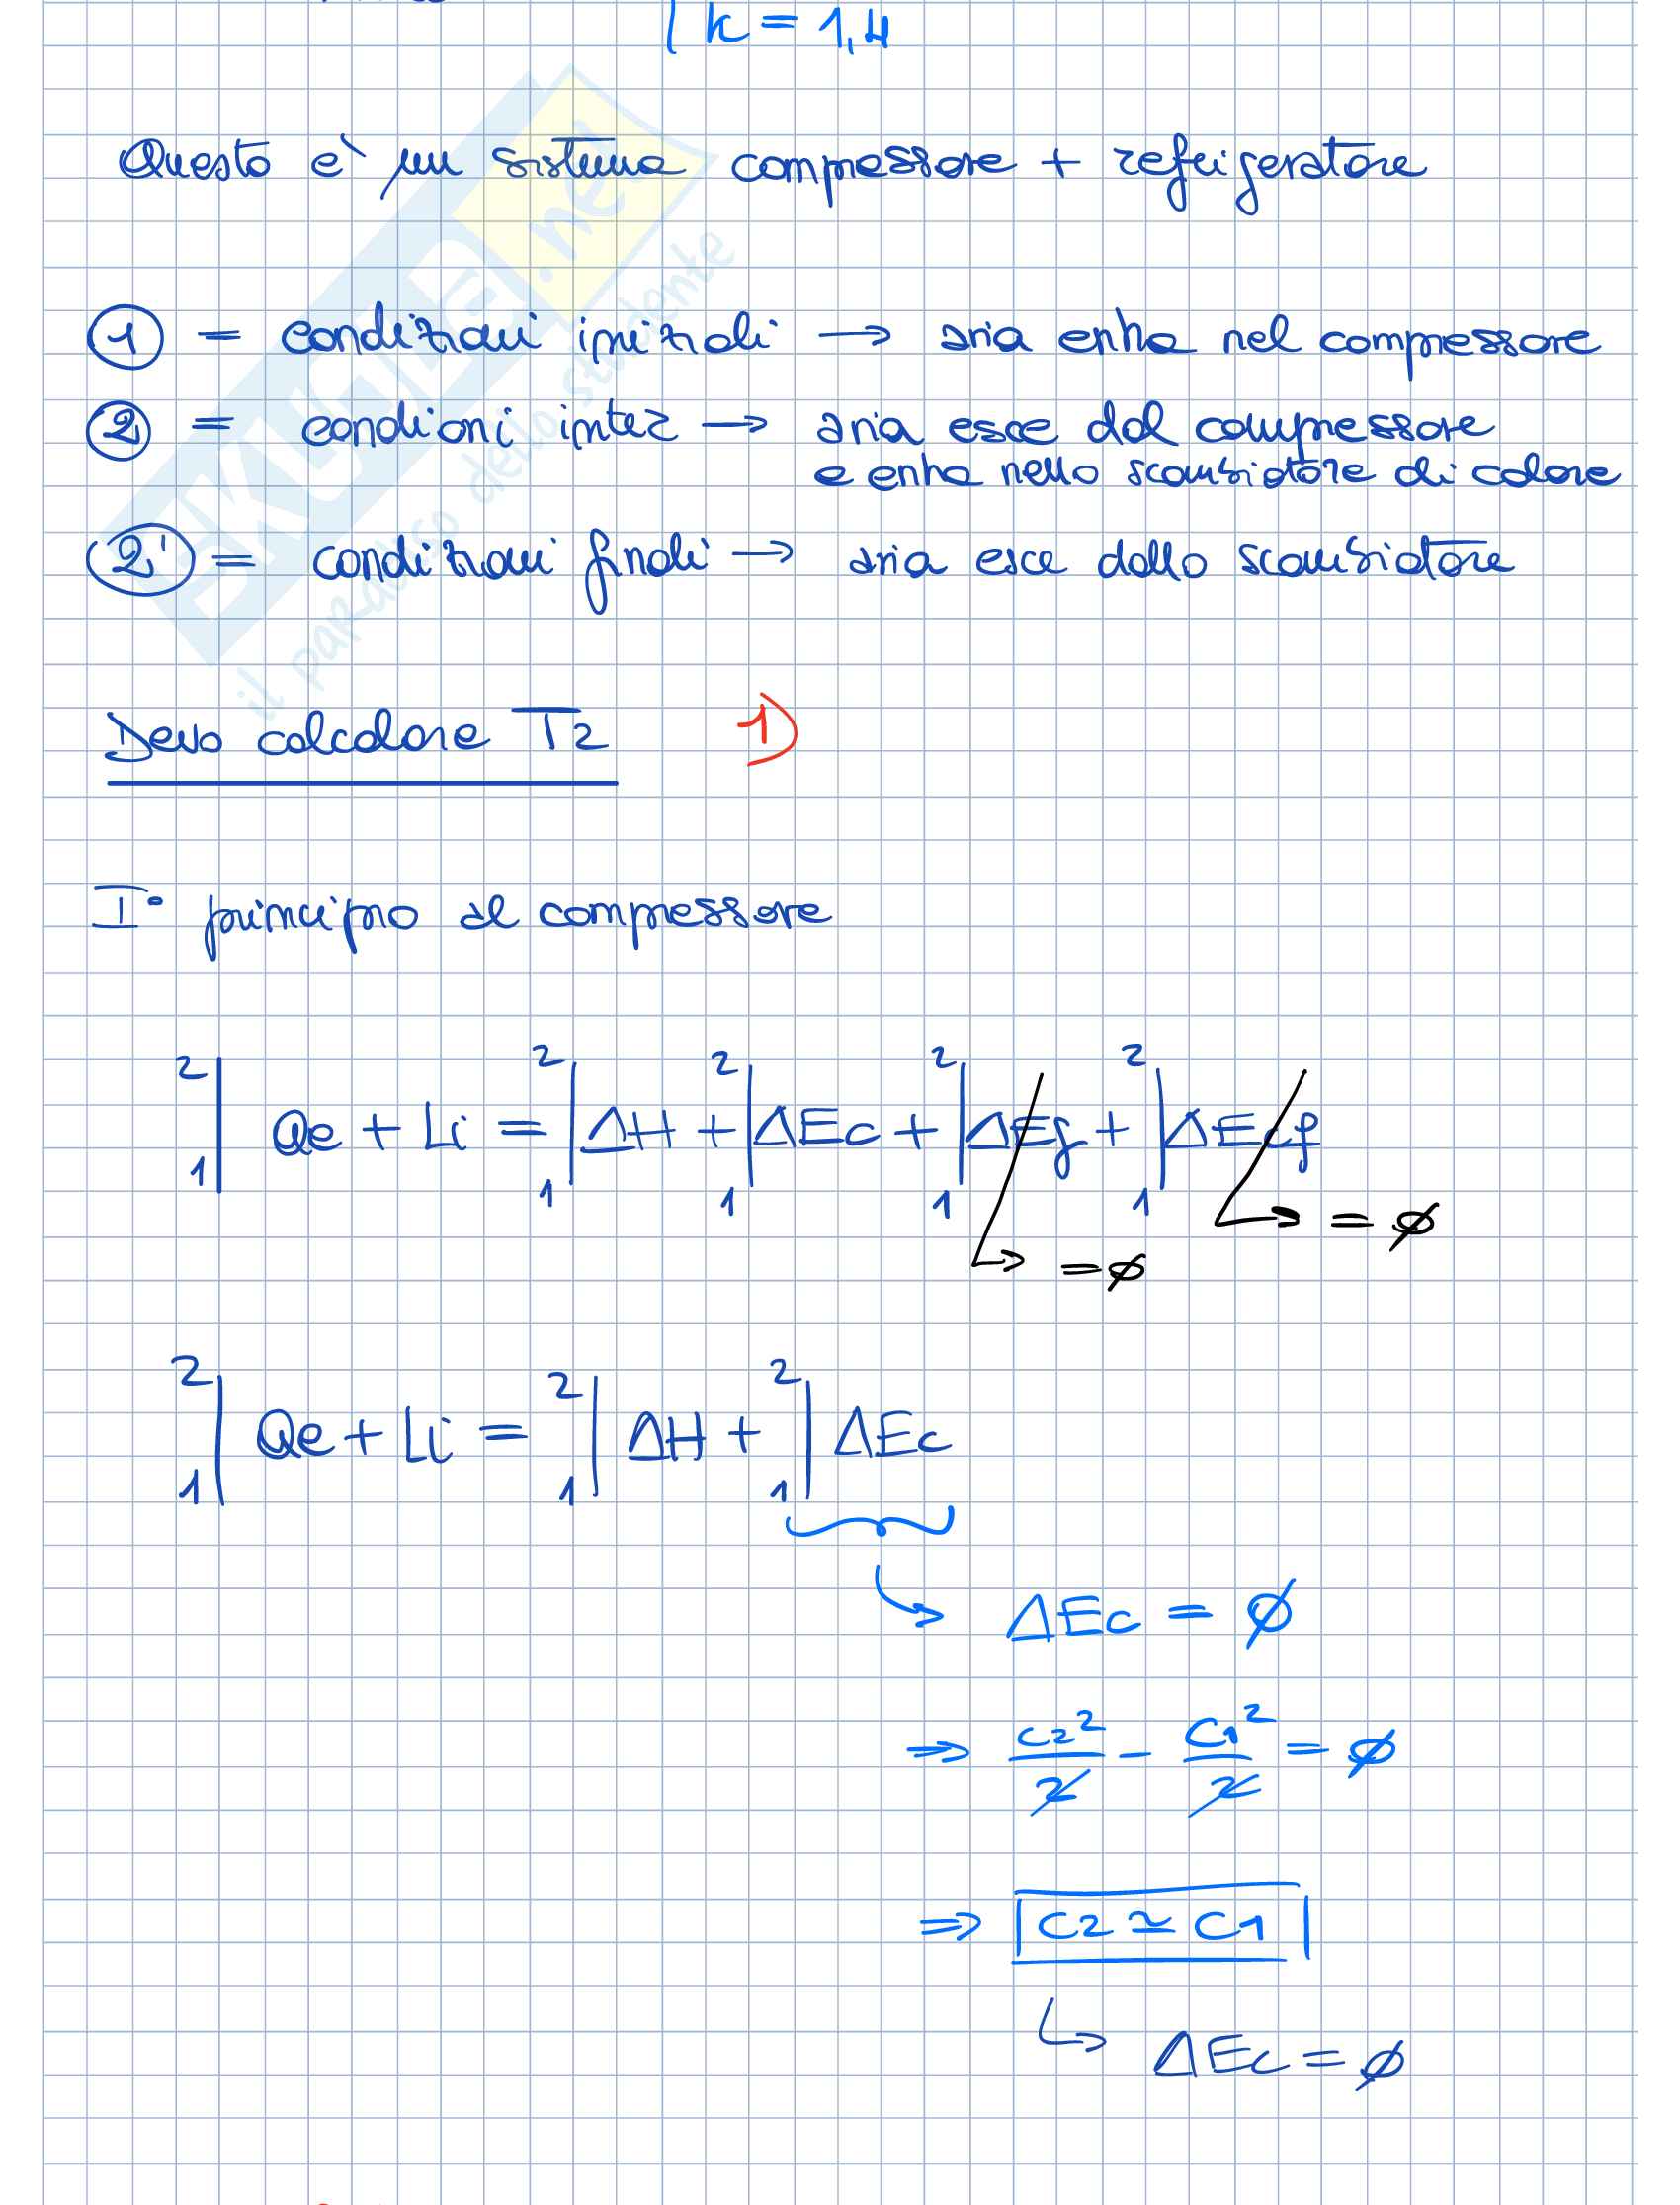 k = 1,4
Questo è un sistema compressore + refrigeratore
1 = condizioni iniziali → aria entra nel compressore
2 = condioni inter → aria esce dal compressore
e entra nello scambiatore di calore
2' = condizioni finali → aria esce dallo scambiatore
Devo calcolare T2 1)
I° principio al compressore
2 2 2 2 2
| Qe + Li = |ΔH + |ΔEc + |ΔEg + |ΔEcf
1 1 1 1 1
→ = ∅
→ = ∅
2 2 2
| Qe + Li = | ΔH + | ΔEc
1 1 1
→ ΔEc = ∅
⇒ c2²/2 - c1²/2 = ∅
⇒ c2 ≃ c1
→ ΔEc = ∅
SKUOLA.net
il paradiso dello studente